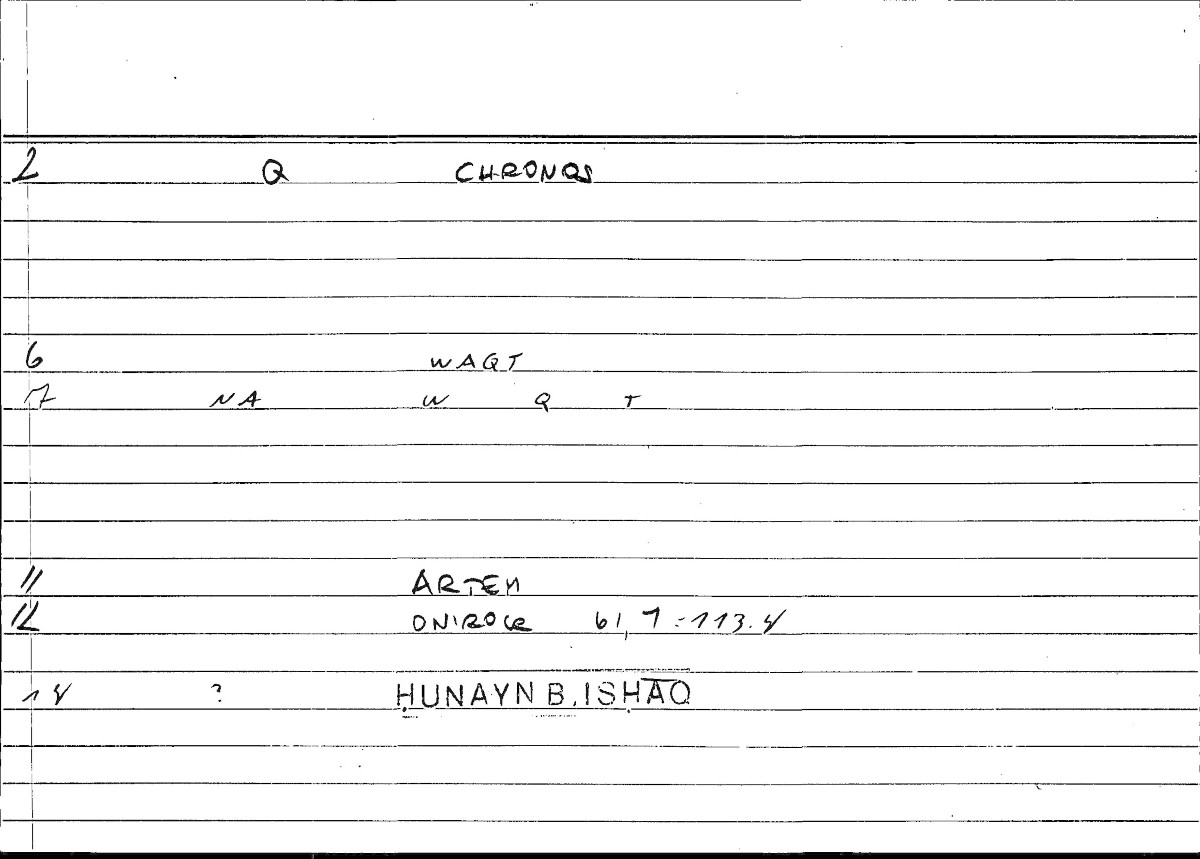 2 Q CHRONOS
6 WAQT
7 NA W Q T
11 ARTEM
12 ONIROCR 61,7=113.4
14 ? ḤUNAYN B.ISḤĀQ